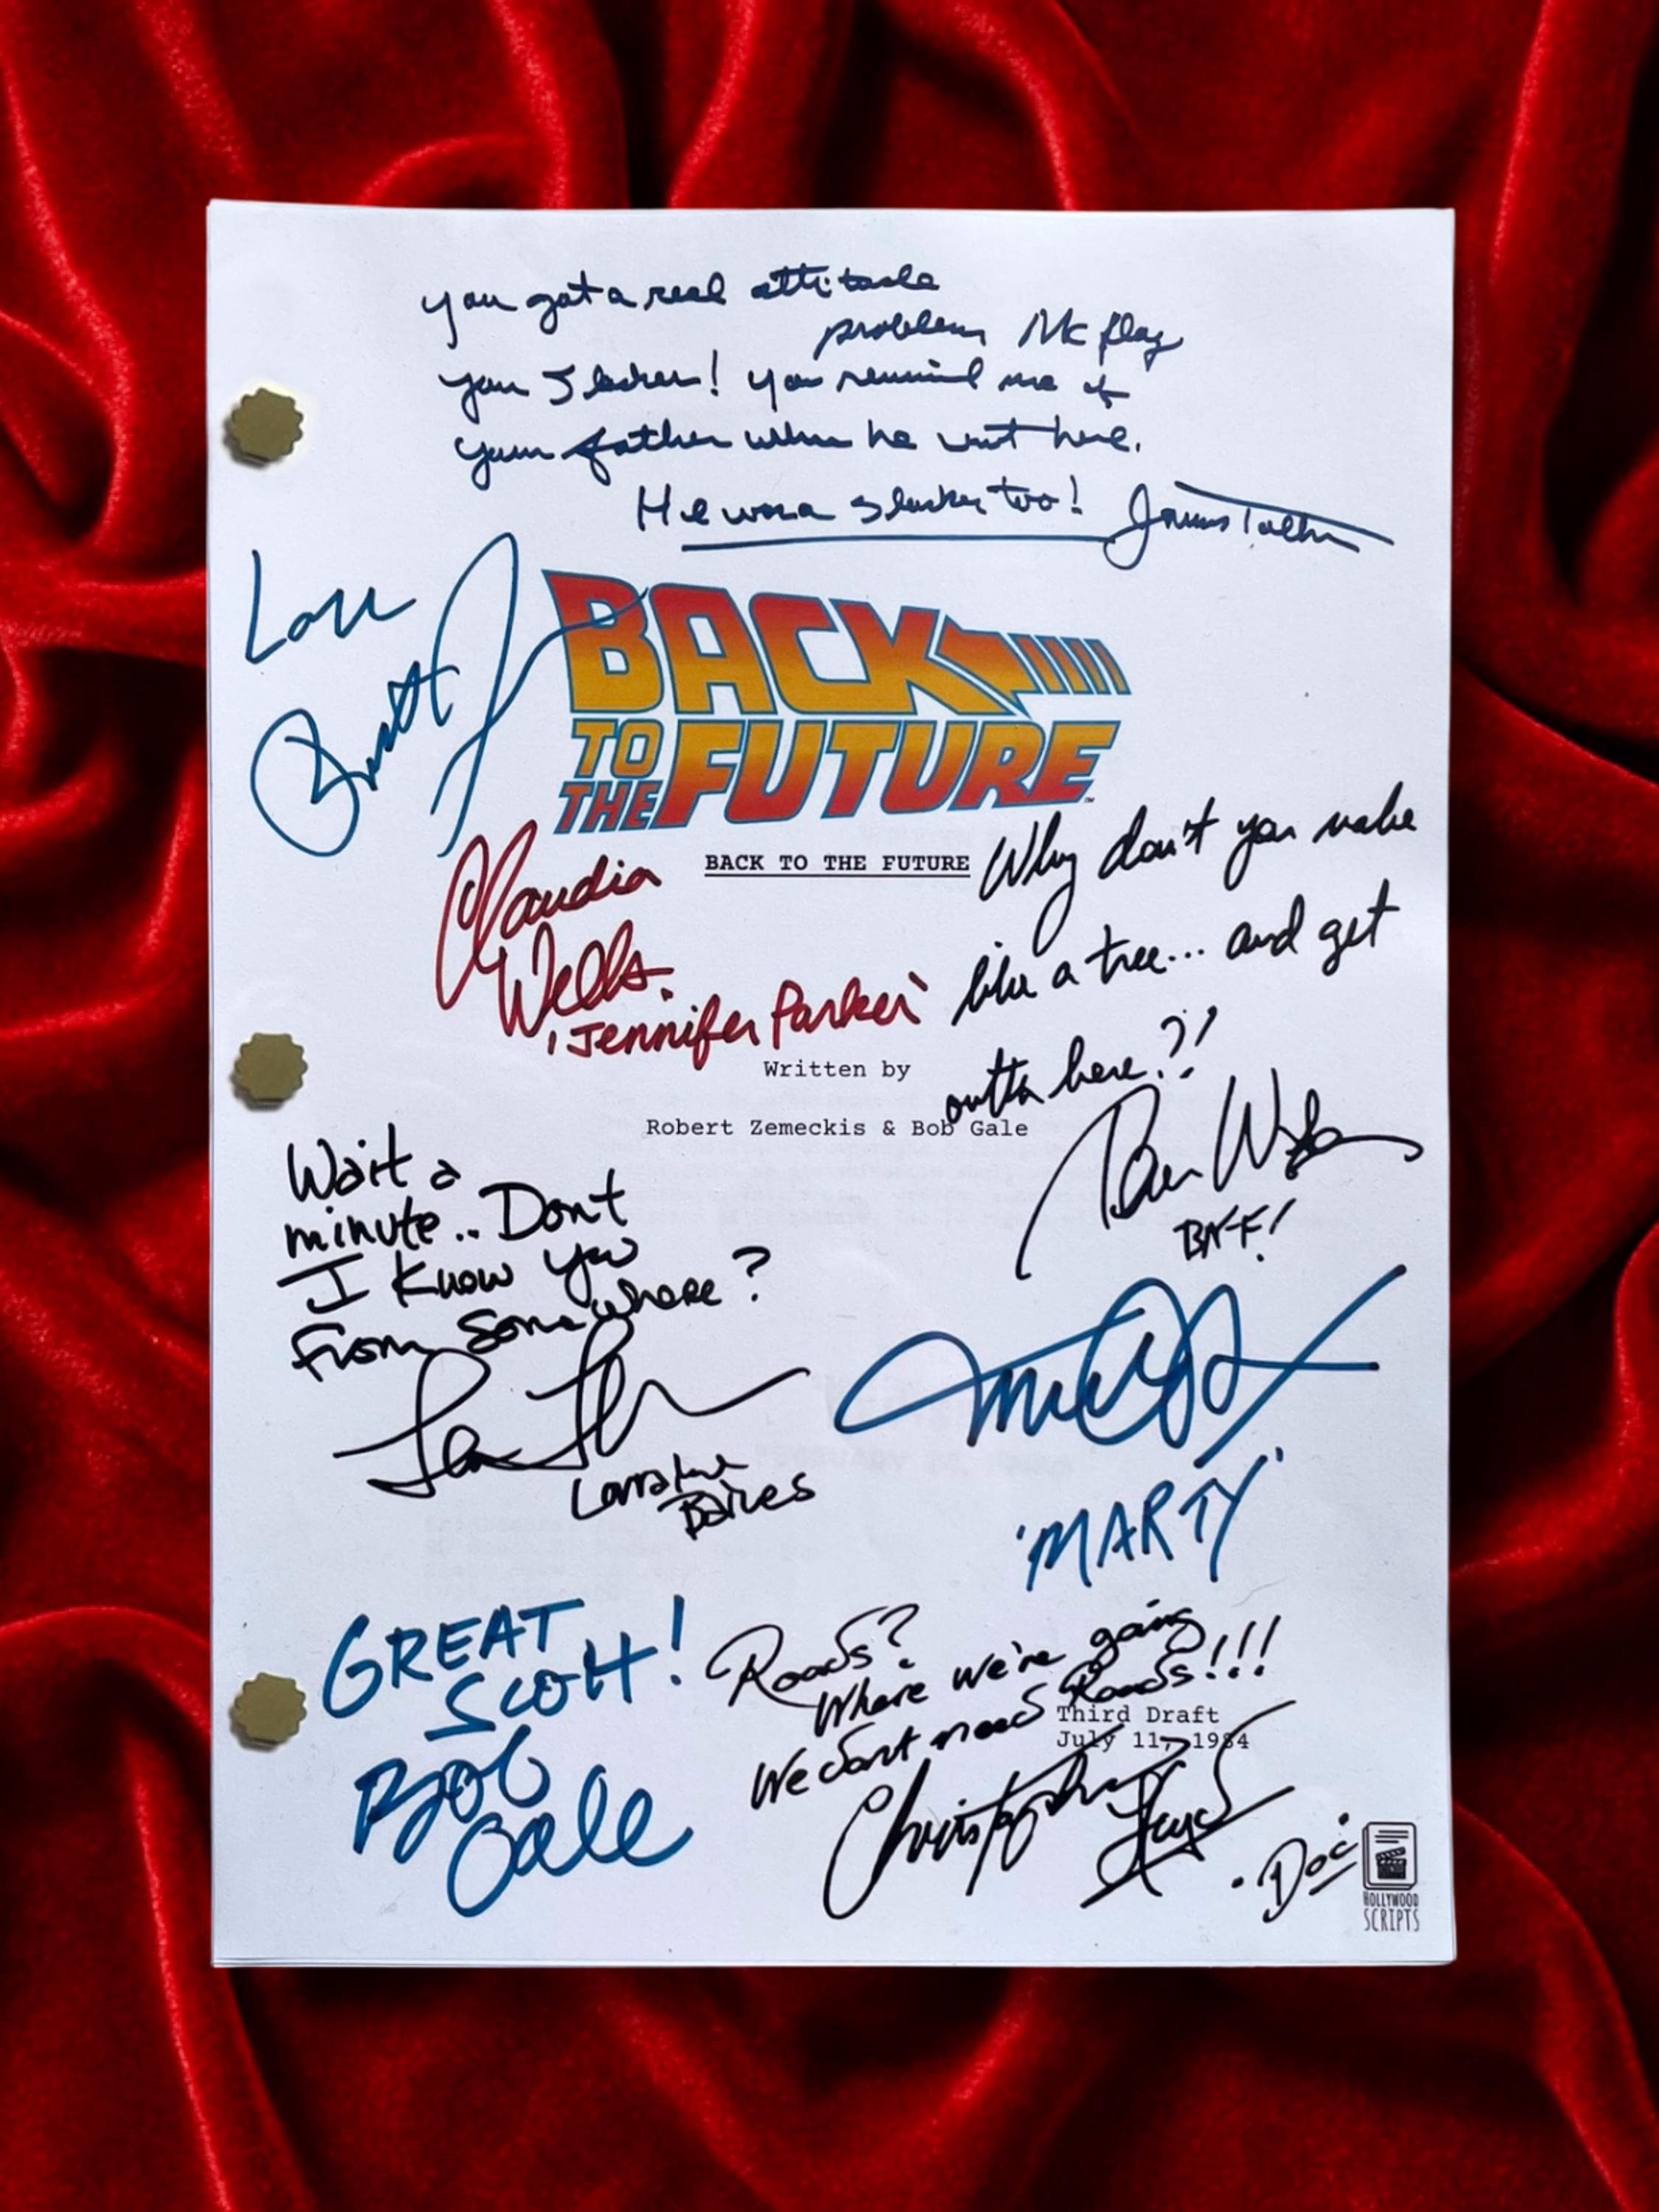 you got a real attitude
problem McFly
you slacker! you remind me of
your father when he went here.
He was a slacker too! James Tolkan
Love
BACK
TO
THE FUTURE
™
BACK TO THE FUTURE
Claudia
Wells.
'Jennifer Parker'
Why don't you make
like a tree... and get
outta here?!
Written by
Robert Zemeckis & Bob Gale
BIFF!
Wait a
minute.. Dont
I know you
from somewhere?
Lea
Lorraine
Baines
'MARTY'
GREAT
SCOTT!
Bob
Gale
Roads?
Where we're going
We dont need Roads!!!
Third Draft
July 11, 1984
Christopher
Lloyd
"Doc"
HOLLYWOOD
SCRIPTS